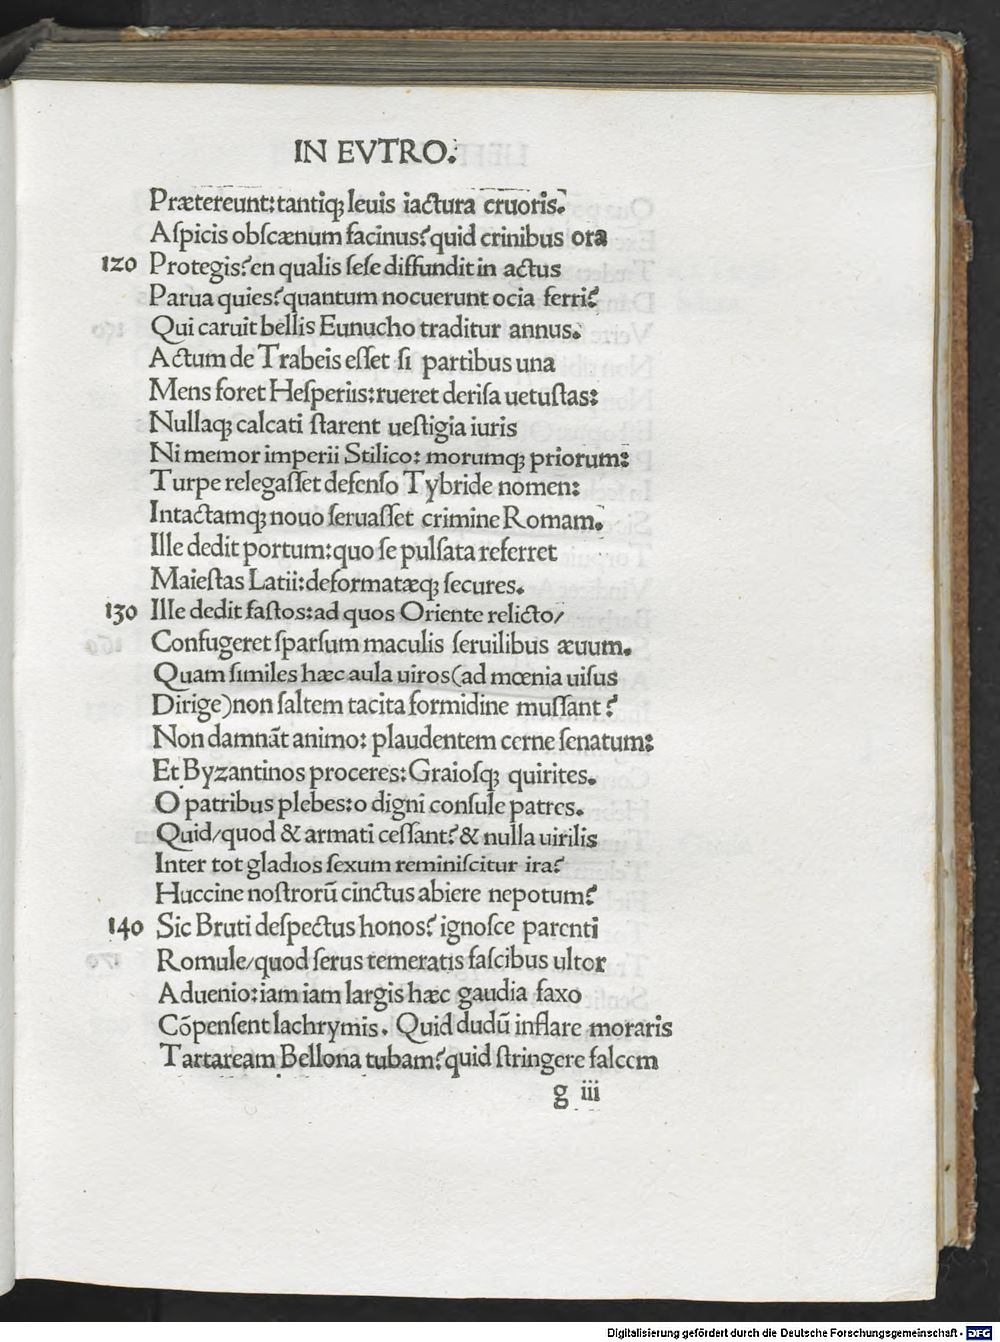 IN EVTRO.
Prætereunt:tantiq; leuis iactura cruoris.
Aſpicis obſcænum facinus?quid crinibus ora
120 Protegis?en qualis ſeſe diffundit in actus
Parua quies?quantum nocuerunt ocia ferri?
Qui caruit bellis Eunucho traditur annus.
Actum de Trabeis eſſet ſi partibus una
Mens foret Heſperiis:rueret deriſa uetuſtas:
Nullaq; calcati ſtarent ueſtigia iuris
Ni memor imperii Stilico: morumq; priorum:
Turpe relegaſſet defenſo Tybride nomen:
Intactamq; nouo ſeruaſſet crimine Romam.
Ille dedit portum:quo ſe pulſata referret
Maieſtas Latii:deformatæq; ſecures.
130 Ille dedit faſtos:ad quos Oriente relicto/
Confugeret ſparſum maculis ſeruilibus æuum.
Quam ſimiles hæc aula uiros(ad mœnia uiſus
Dirige)non ſaltem tacita formidine muſſant?
Non damnãt animo: plaudentem cerne ſenatum:
Et Byzantinos proceres:Graioſq; quirites.
O patribus plebes:o digni conſule patres.
Quid/quod & armati ceſſant?& nulla uirilis
Inter tot gladios ſexum reminiſcitur ira?
Huccine noſtrorũ cinctus abiere nepotum?
140 Sic Bruti deſpectus honos? ignoſce parenti
Romule/quod ſerus temeratis faſcibus ultor
Aduenio:iam iam largis hæc gaudia faxo
Cõpenſent lachrymis. Quid dudũ inflare moraris
Tartaream Bellona tubam?quid ſtringere falcem
g iii
Digitalisierung gefördert durch die Deutsche Forschungsgemeinschaft - DFG